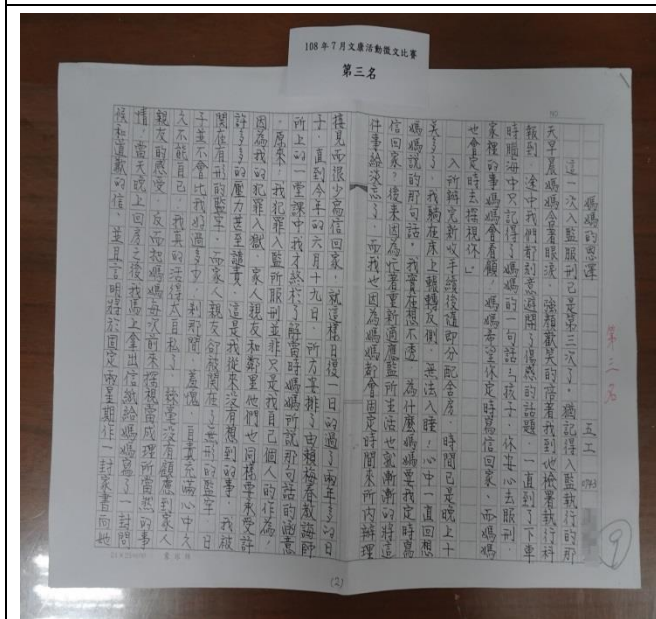 108年7月文康活動徵文比賽
第三名
第三名
媽媽的恩澤
五工 0943
這一次入監服刑已是第三次了。猶記得入監執行的那
天早晨媽媽含著眼淚、強顏歡笑的陪著我到地檢署執行科
報到,途中我們都刻意避開了傷感的話題。一直到了下車
時腦海中只記得了媽媽的一句話:「孩子,你安心去服刑,
家裡的事媽媽會看顧,媽媽希望你定時寫信回家、而媽媽
也會定時去探視你!」
入所辦完新收手續後隨即分配舍房,時間已是晚上十
點多了,我躺在床上輾轉反側、無法入睡!心中一直回想
媽媽說的那句話。我實在想不透,為什麼媽媽要我定時寫
信回家。後來因為忙著重新適應監所生活也就漸漸的將這
件事給淡忘了,而我也因為媽媽都會固定時間來所內辦理
接見而很少寫信回家。就這樣日復一日的過了兩年多的日
子,直到今年的六月十九日,所方安排了由賴梅春教誨師
所上的一堂課中我才終於了解當時媽媽所說那句話的涵意
。原來,我犯罪入監所服刑並非只是我自己個人的作為,
因為我的犯罪入獄,家人親友和鄰里他們也同樣要承受許
許多多的壓力甚至譴責,這是我從來沒有想到的事。我被
關在有形的監牢,而家人親友卻被關在了無形的監牢,日
子並不會比我好過多少,剎那間,羞愧、自責充滿心中久
久不能自已,我真的活得太自私了,絲毫沒有顧慮到家人
親友的感受,反而把媽媽每次前來探視當成理所當然的事
情,當天晚上回房之後我馬上拿出信紙給媽媽寫了一封問
候和道歉的信、並且言明將於固定兩星期作一封家書向她
(2)
9